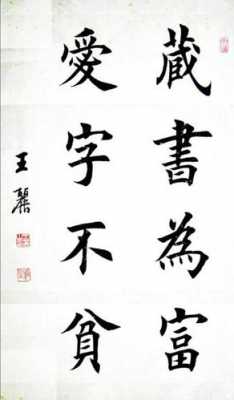 藏書為富
愛字不貧
王